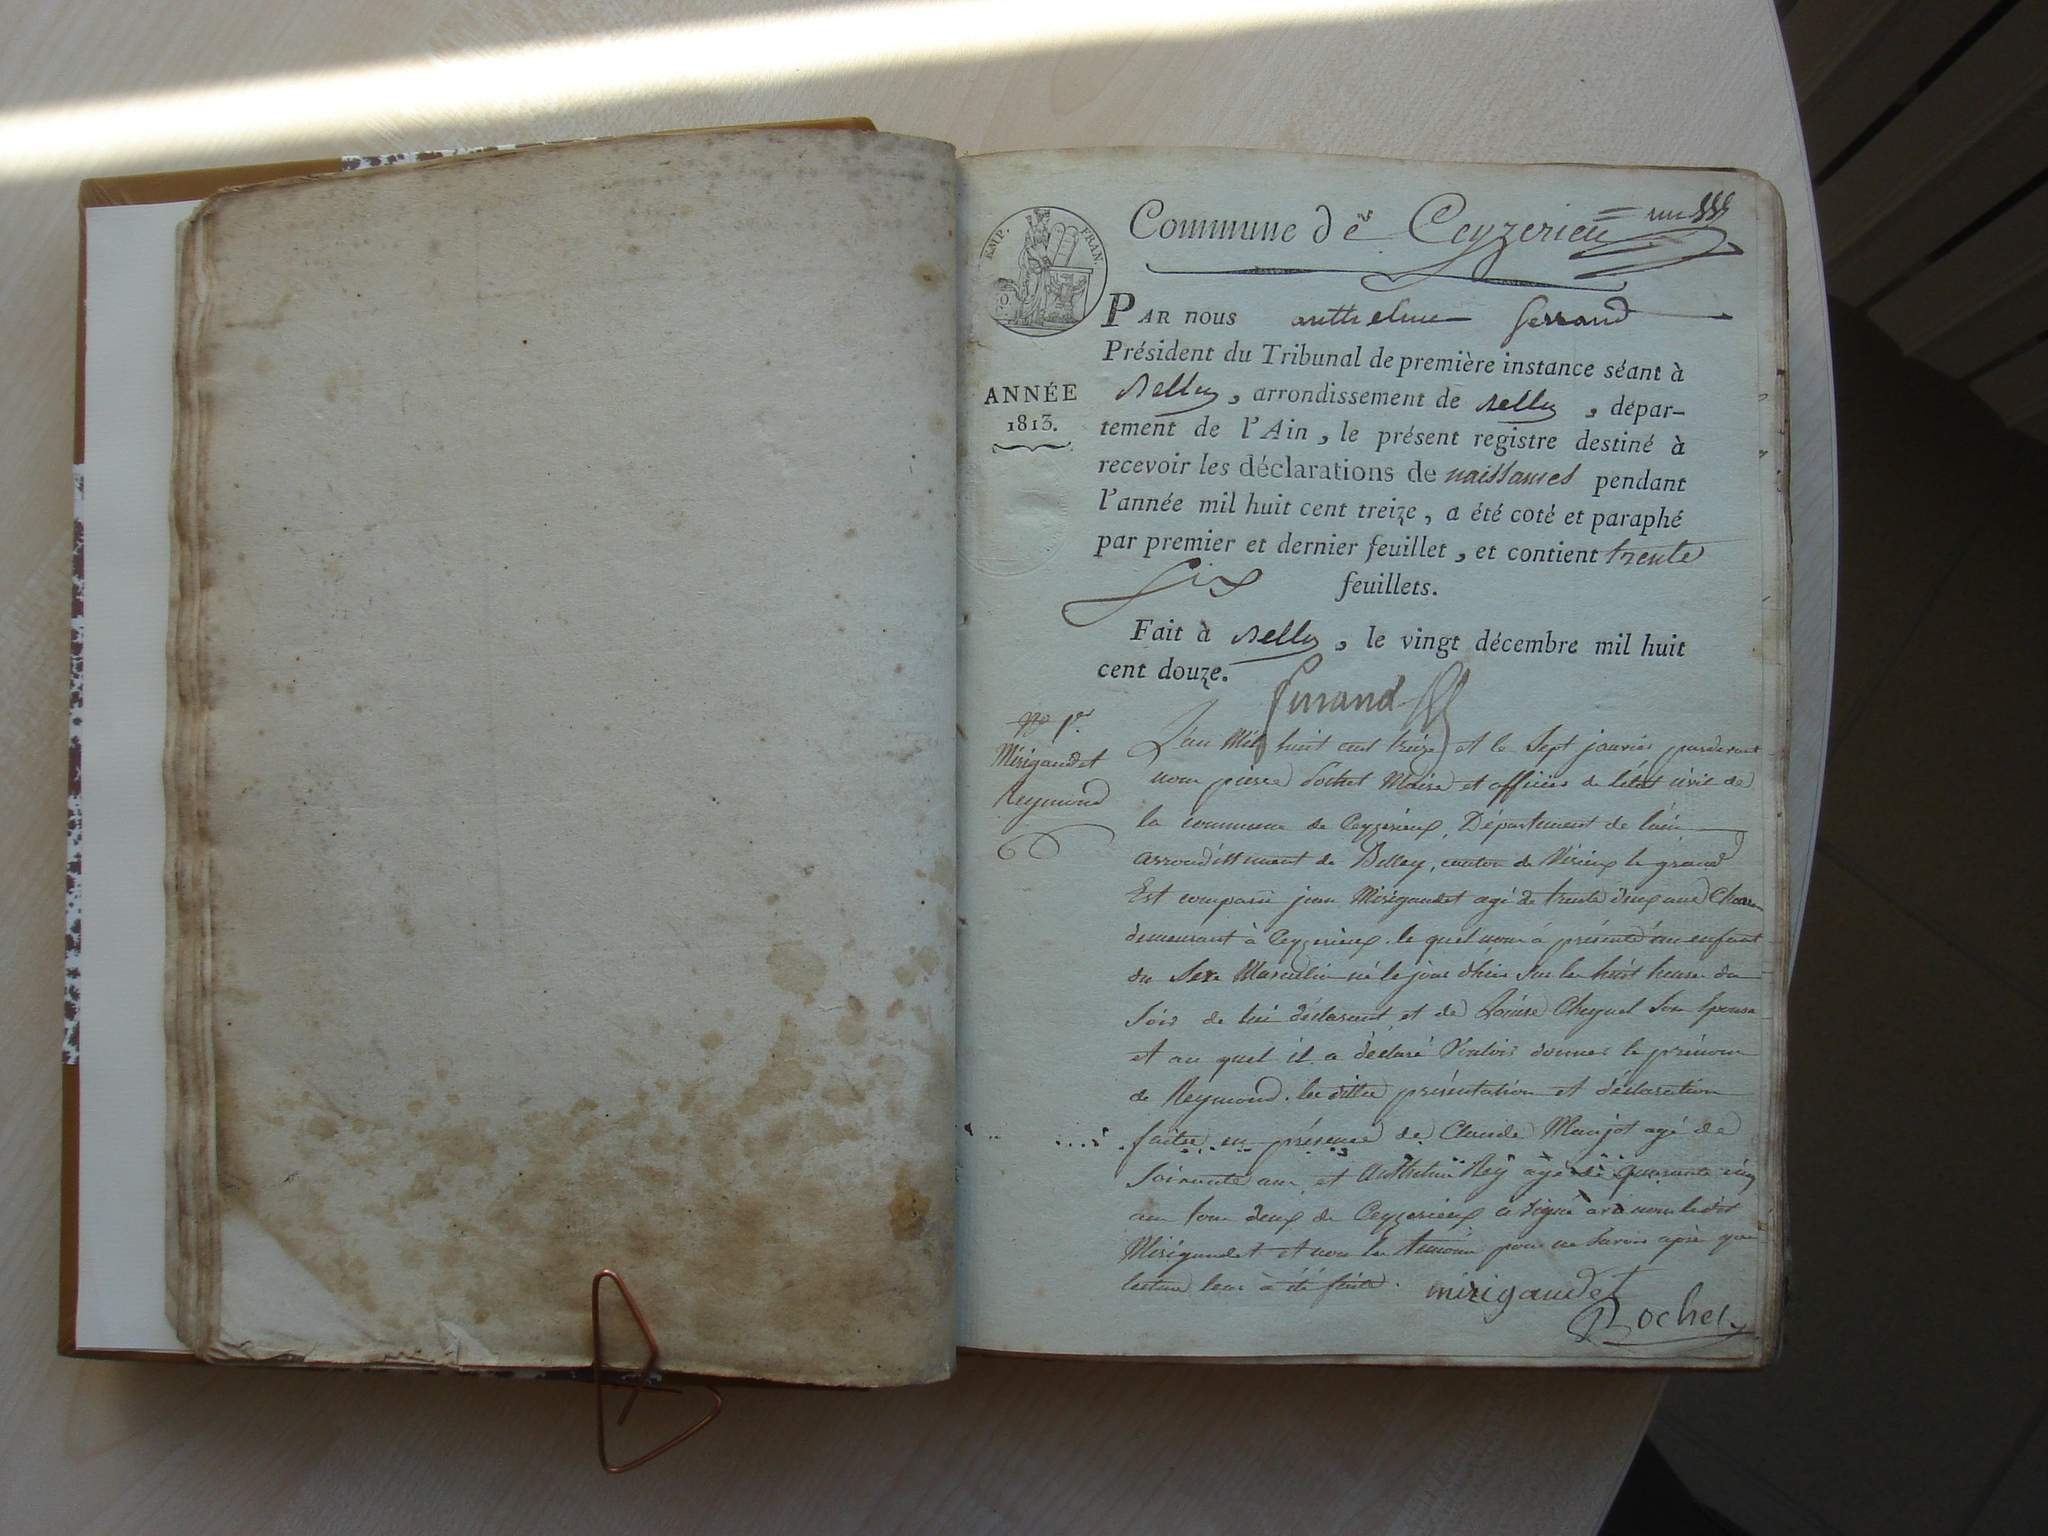 Commune de Ceyzerieu un
EMP. FRAN.
PAR nous anthelme ferrand
Président du Tribunal de première instance séant à
Belley, arrondissement de Belley, dépar-
ANNÉE
1813.
tement de l'Ain, le présent registre destiné à
recevoir les déclarations de naissances pendant
l'année mil huit cent treize, a été coté et paraphé
par premier et dernier feuillet, et contient trente
six feuillets.
Fait à Belley, le vingt décembre mil huit
cent douze.
ferrand
No 1er
Mirigaudet
Reymond
L'an Mil huit cent treize et le sept janvier pardevant
nous pierre Rochet Maire et officier de létat civil de
la commune de Ceyzerieux, Département de lain
arrondissement de Belley, canton de Virieux le grand
Est comparu jean Mirigaudet agé de trente deux ans
demeurant à Ceyzerieux. le quel nous à présenté un enfant
du Sexe Masculin né le jour d'hier sur les huit heures du
soir de lui déclarant et de Louise son épouse
et au quel il a déclaré Vouloir donner le prénom
de Reymond. les dittes présentation et déclaration
faites en présence de Claude Manjot agé de
soixante ans et Anthelme Rey agé de quarante cinq
ans tous deux de Ceyzerieux a signé avec nous ledit
Mirigaudet et non les témoins pour ne savoir après que
lecture leur à été faite.
mirigaudet
Rochet